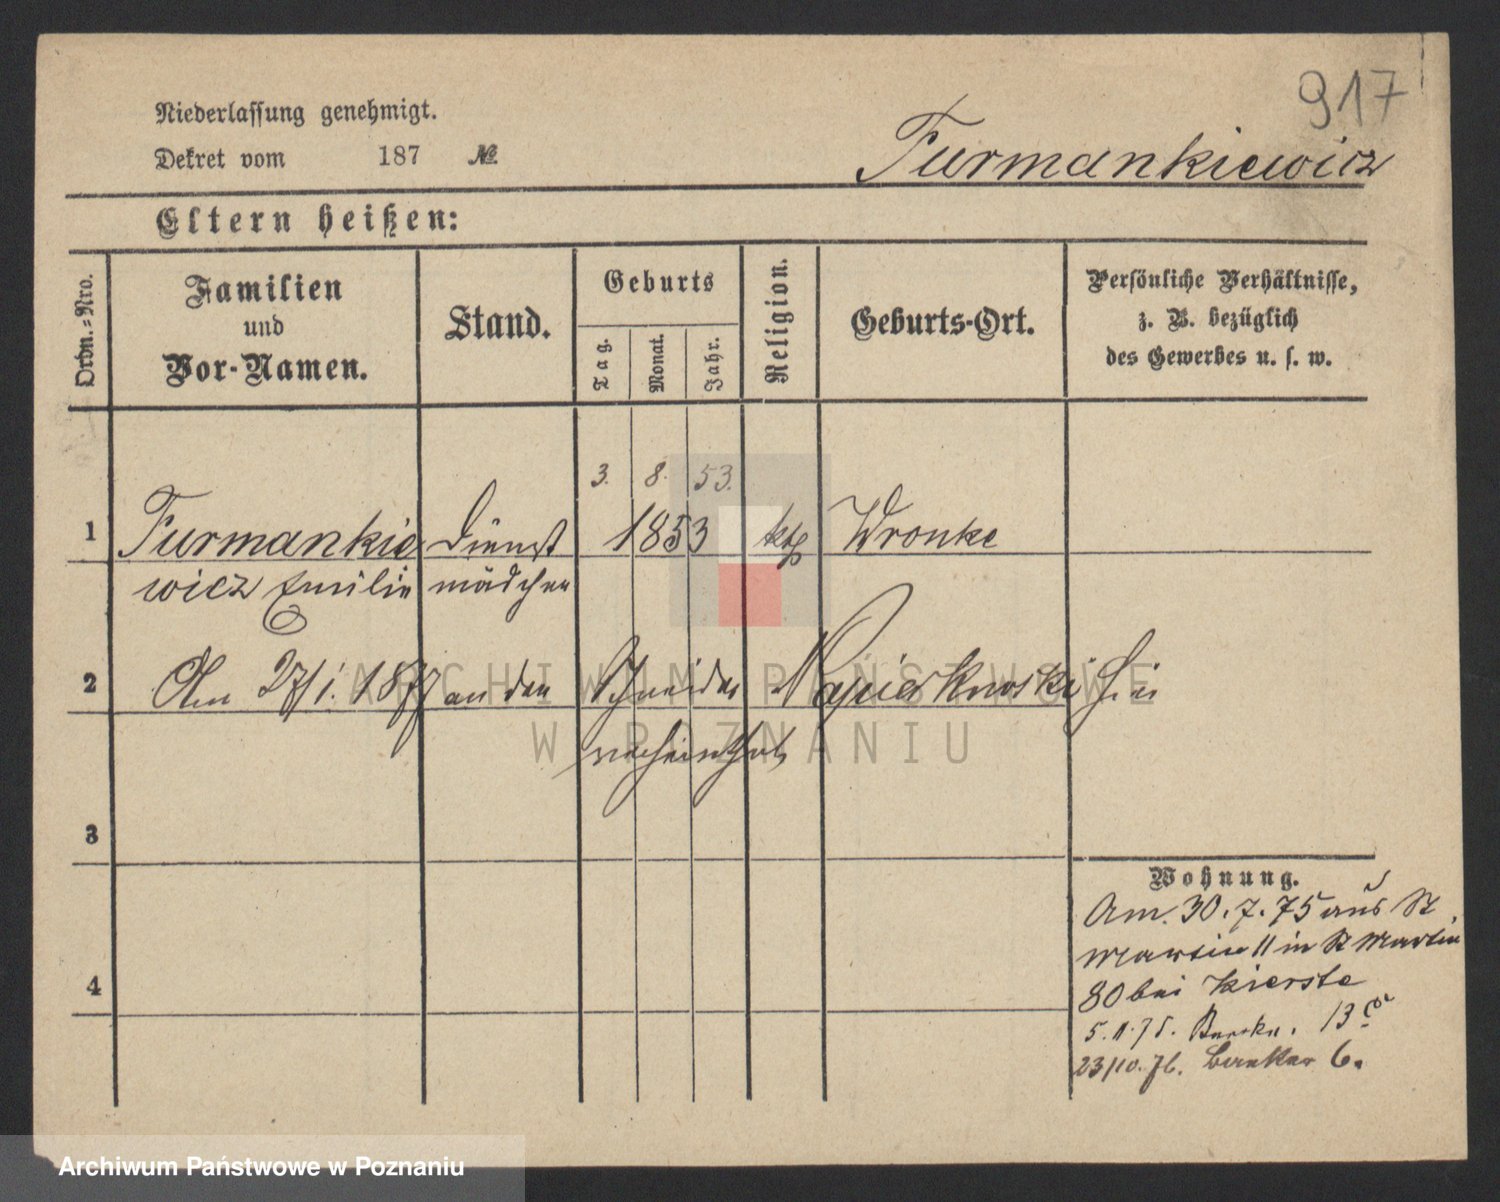 917
Niederlassung genehmigt.
Dekret vom 187 №
Furmankiewicz
Eltern heißen:
Ordn.=Nro.
Familien und Vor-Namen.
Stand.
Geburts
Tag.
Monat.
Jahr.
Religion.
Geburts-Ort.
Persönliche Verhältnisse, z. B. bezüglich des Gewerbes u. s. w.
3. 8. 53.
1 Furmankie Dienst 1853 kth Wronke
wicz Emilie mädchen
2 Am 27/1. 1877 an den Schneider hier
verheirathet
3
4
Wohnung.
Am 30.7.75 aus St
Martin 11 in St Martin
80 bei Kierste
5.11.75. 13
23/10.76. Baecker 6.
ARCHIWUM PAŃSTWOWE
W POZNANIU
Archiwum Państwowe w Poznaniu